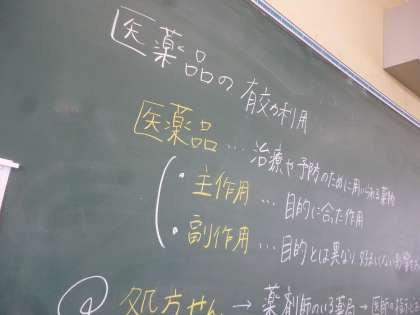 医薬品の有効利用
医薬品…治療や予防のために用いられる薬物
・主作用…目的に合った作用
・副作用…目的とは異なり好ましくない
処方せん→薬剤師のいる薬局→医師の指示